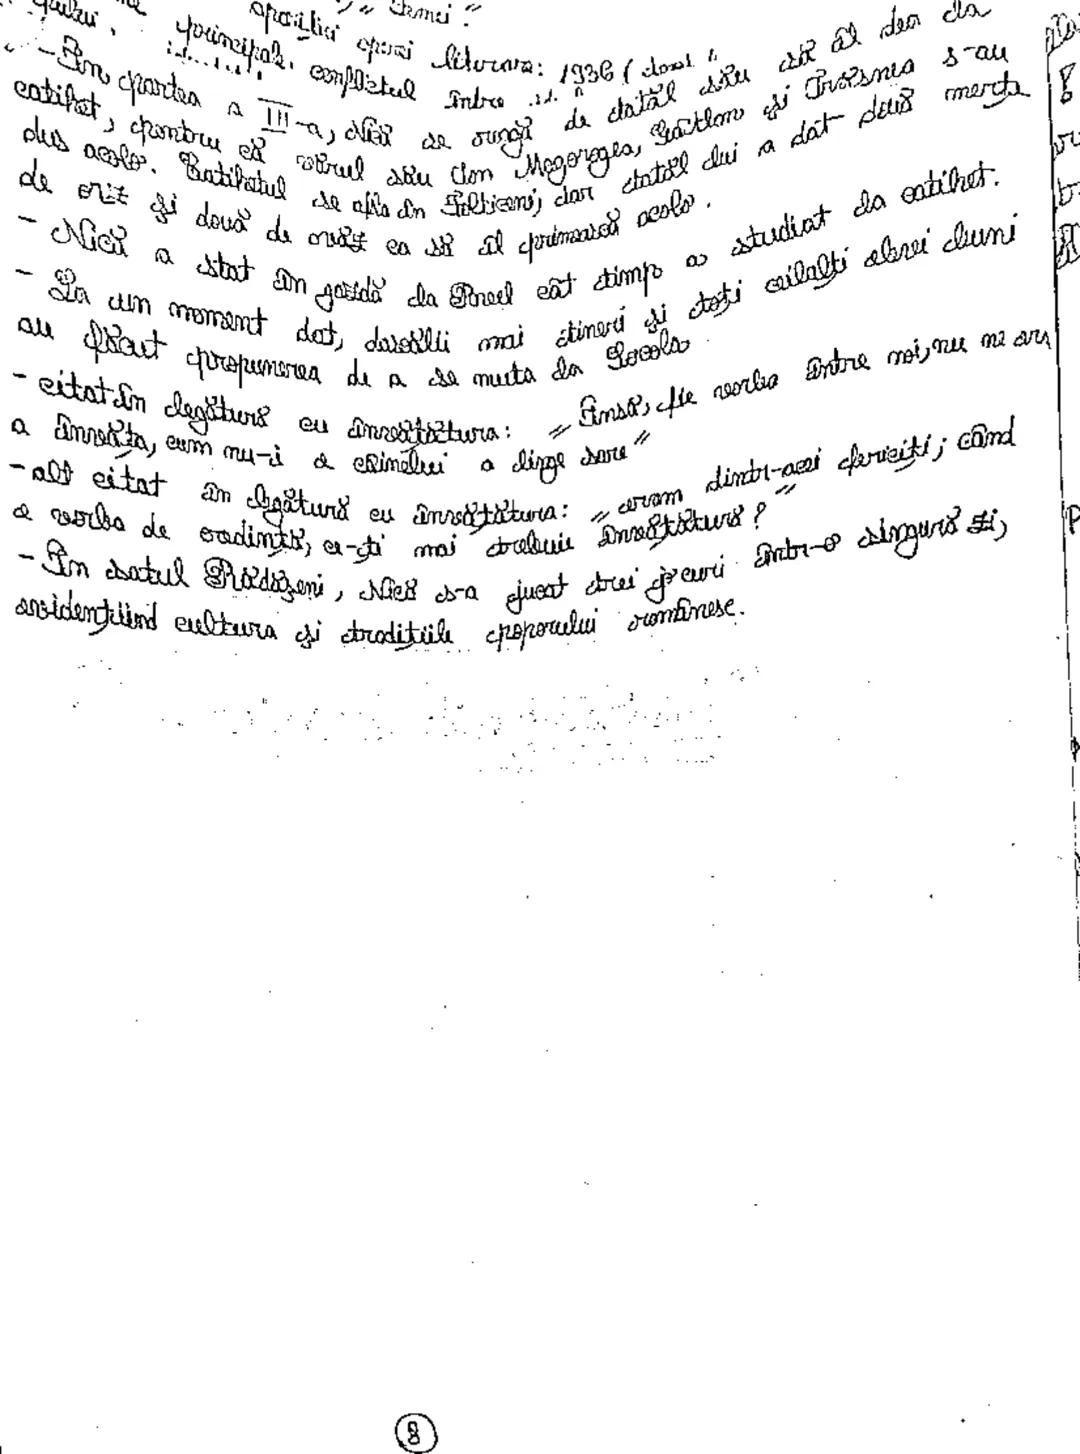 "temei".
apariției operei literare: 1936 (
principale. conflictul între
- În partea a III-a, Nică se roagă de tatăl său să îl dea la
catihet, pentru că vărul său Ion Mogorogea, Gâtlan și Trăsnea s-au
dus acolo. Catihetul se afla în Fălticeni, dar tatăl lui a dat două merțe
de orz și două de ovăz ca să îl primească acolo.
- Nică a stat în gazdă la Pavel cât timp a studiat la catihet.
- La un moment dat, dascălii mai tineri și toți ceilalți elevi chuni
au făcut propunerea de a se muta la Socola.
- citat în legătură cu învățătura: „Însă, fie vorba între noi, nu ne ars
a învăța, cum nu-i e câinelui a linge sare"
- alt citat în legătură cu învățătura: „eram dintr-acei fericiți; când
e vorba de credință, ce-ți mai trebuie învățătură?"
- În satul Rădăzeni, Nică s-a jucat trei jocuri într-o singură zi,
evidențiind cultura și tradițiile poporului românesc.
8